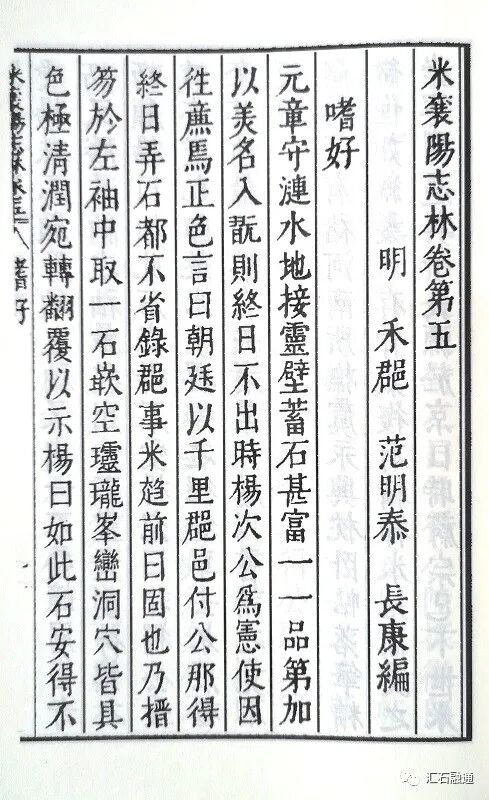 米襄陽志林卷第五
明 禾郡 范明泰 長康編
嗜好
元章守漣水地接靈壁蓄石甚富一一品第加
以美名入翫則終日不出時楊次公為憲使因
徃廉焉正色言曰朝廷以千里郡邑付公那得
終日弄石都不省錄郡事米趋前曰固也乃搢
笏於左袖中取一石嵌空瓏瓏峯巒洞穴皆具
色極清潤宛轉翻覆以示楊曰如此石安得不
嗜好
汇石融通